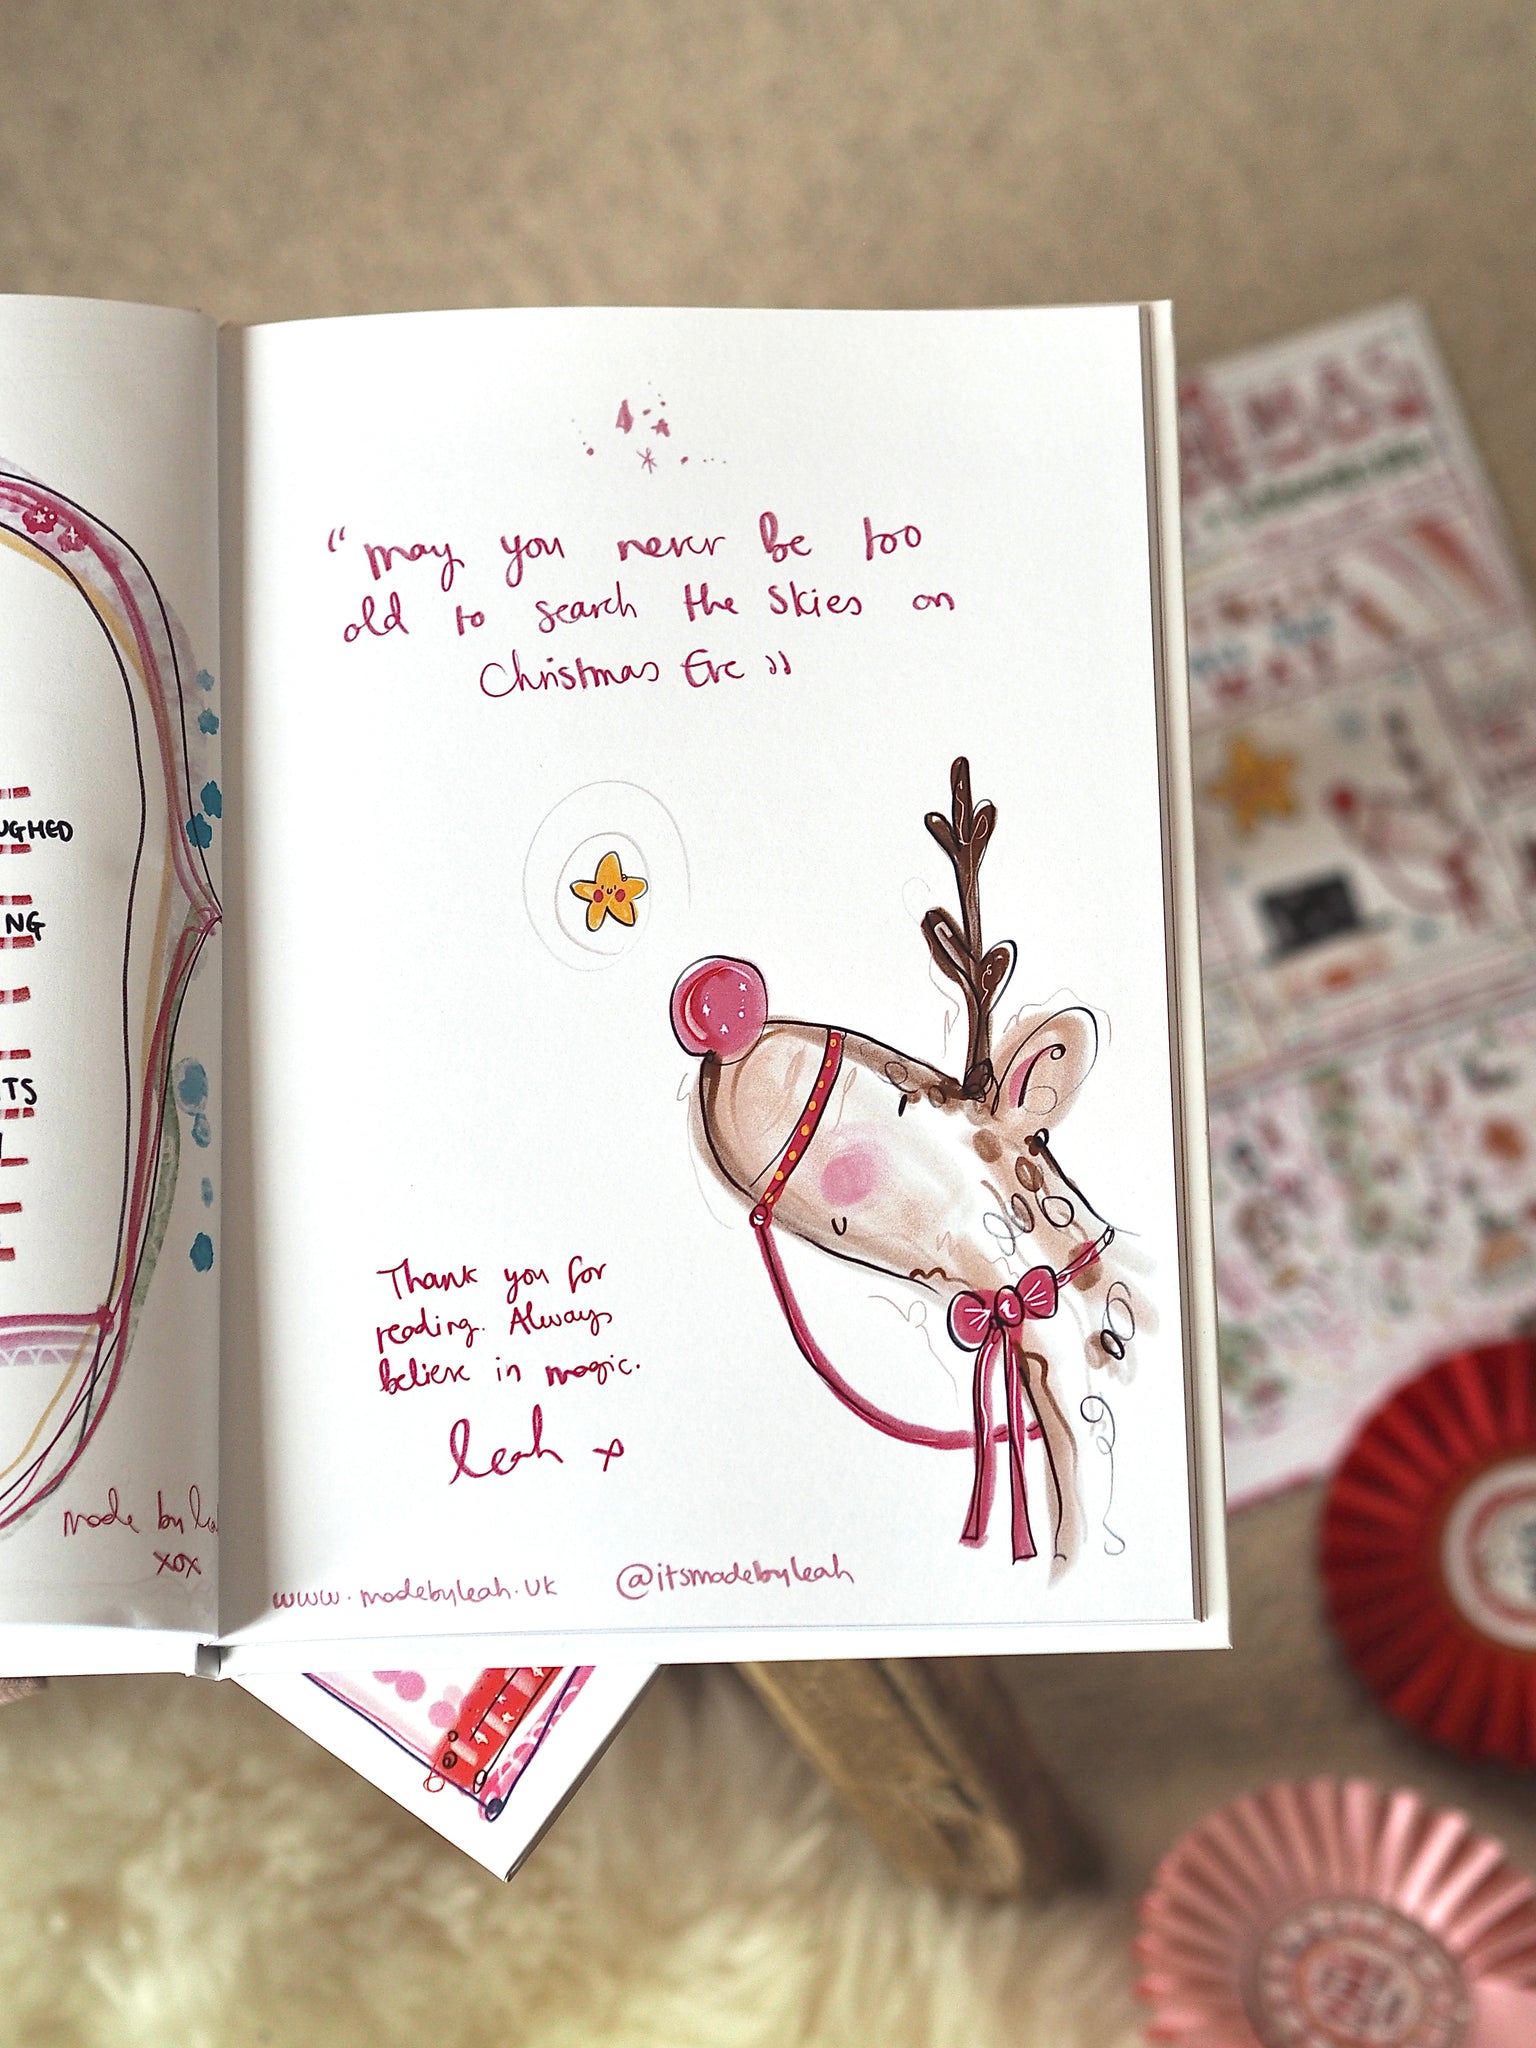 UGHED
NG
TS
made by
xox
“may you never be too
old to search the skies on
Christmas Eve”
Thank you for
reading. Always
believe in magic.
Leah x
www.madebyleah.uk
@itsmadebyleah